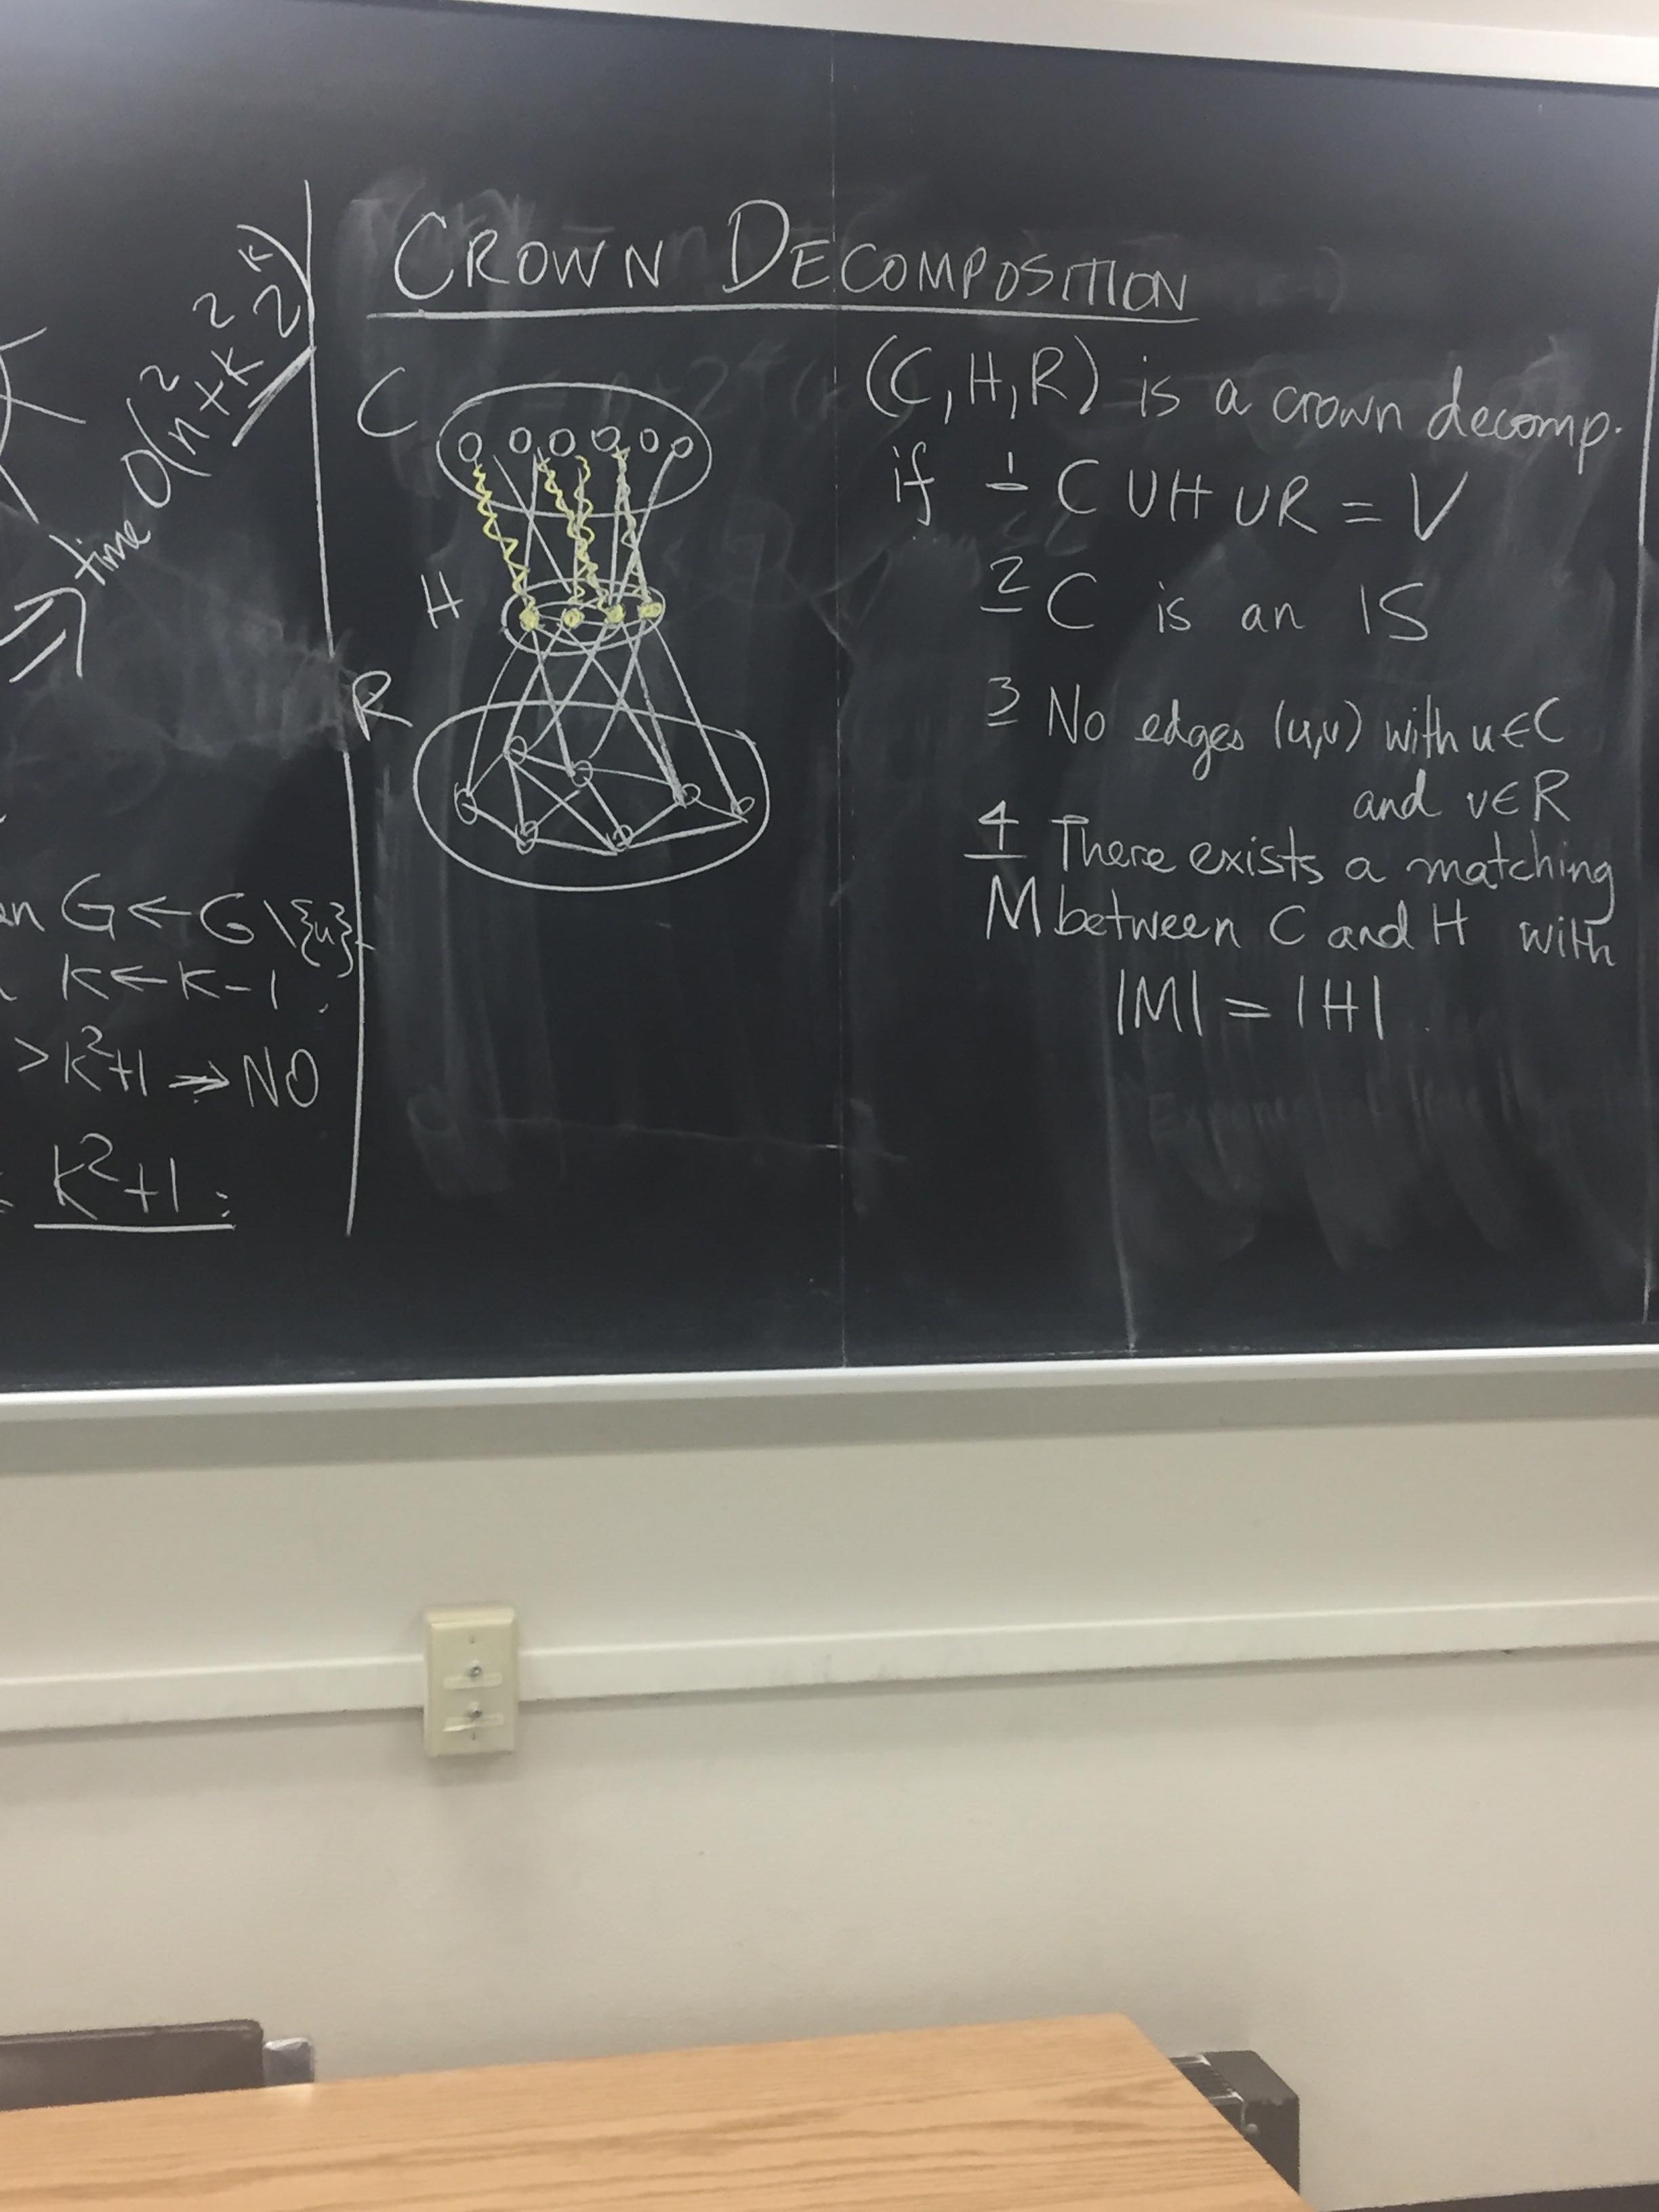 time O(n²+k² 2ᵏ)
G ← G \ {u}
K ← K-1.
> K²+1 ⇒ NO
K²+1.
CROWN DECOMPOSITION
C
H
R
(C,H,R) is a crown decomp.
if 1 C ∪ H ∪ R = V
2 C is an IS
3 No edges (u,v) with u∈C
and v∈R
4 There exists a matching
M between C and H with
|M| = |H|.